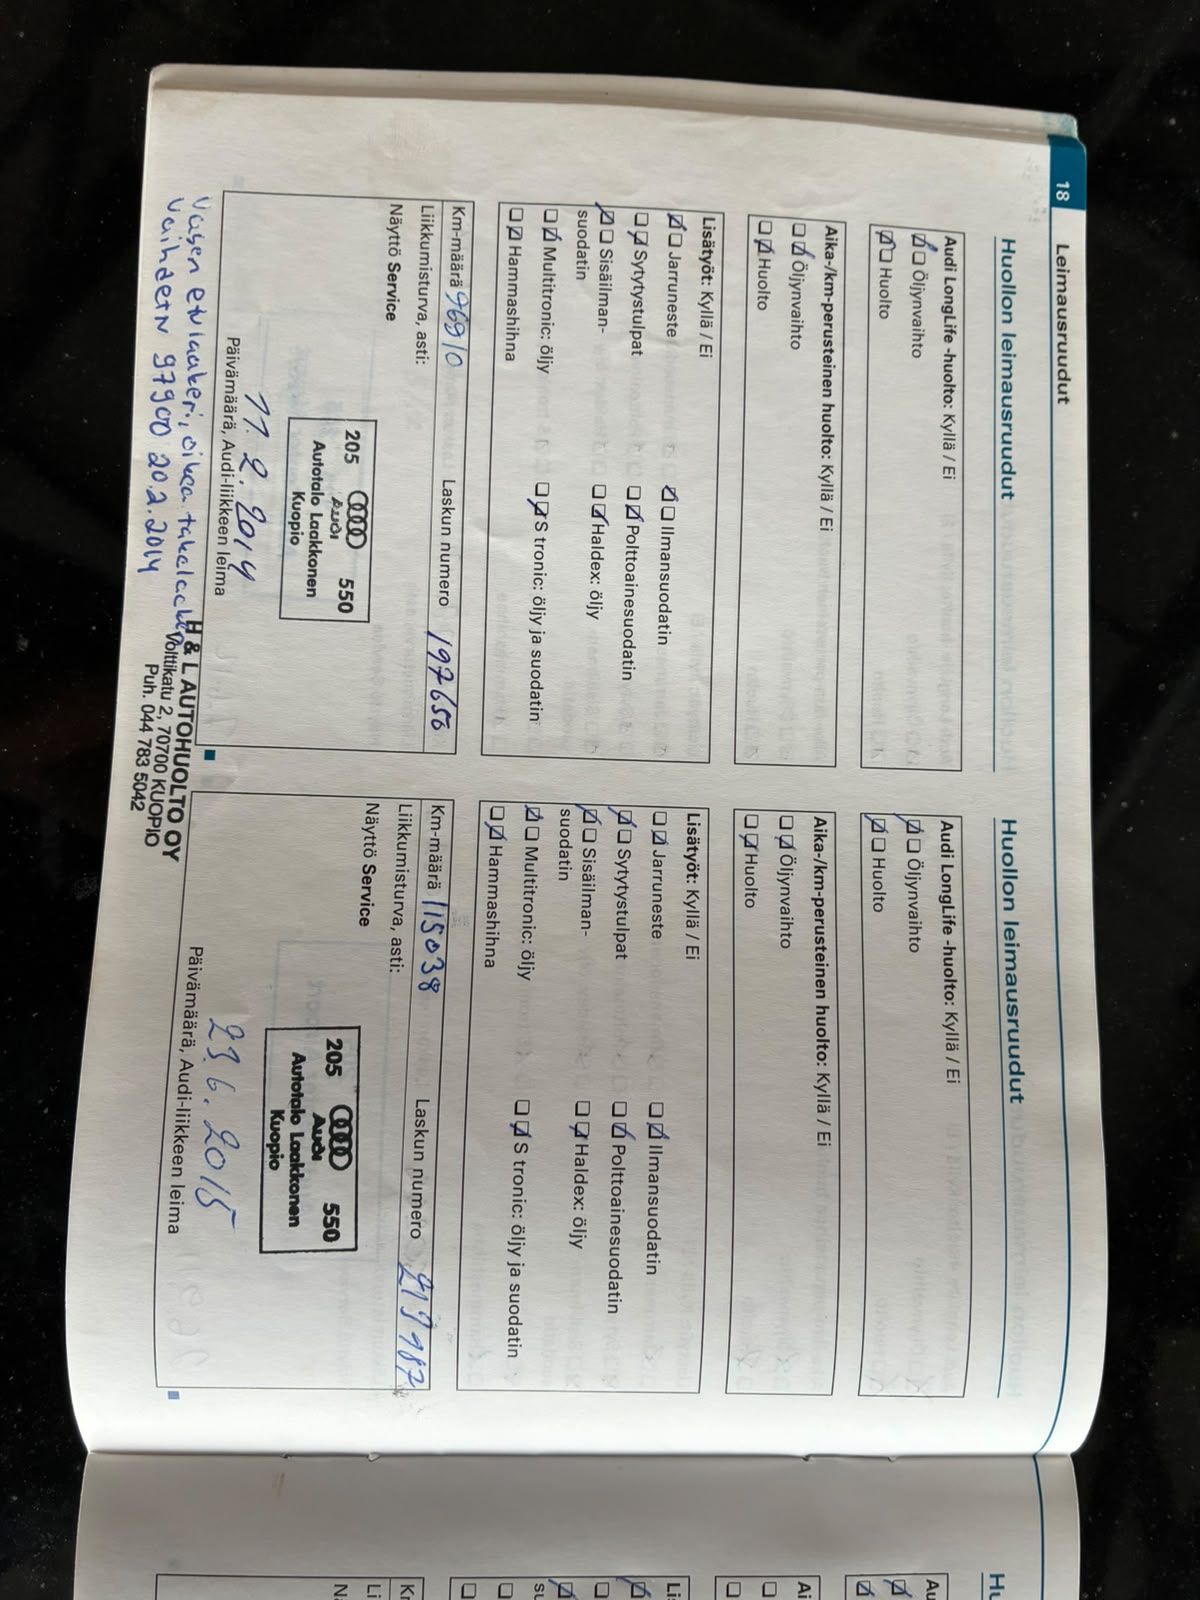 18
Leimausruudut
Huollon leimausruudut
Audi LongLife -huolto: Kyllä / Ei
Öljynvaihto
Huolto
Aika-/km-perusteinen huolto: Kyllä / Ei
Öljynvaihto
Huolto
Lisätyöt: Kyllä / Ei
Jarruneste
Ilmansuodatin
Sytytystulpat
Polttoainesuodatin
Sisäilman-
suodatin
Haldex: öljy
Multitronic: öljy
S tronic: öljy ja suodatin
Hammashihna
Km-määrä 96910
Laskun numero 197656
Liikkumisturva, asti:
Näyttö Service
205 Audi 550
Autotalo Laakkonen
Kuopio
11.2.2014
Päivämäärä, Audi-liikkeen leima
Vasen etulaakeri, oikea takalaakeri
Vaihdettu 97900 20.2.2014
H & L AUTOHUOLTO OY
Volttikatu 2, 70700 KUOPIO
Puh. 044 783 5042
Huollon leimausruudut
Audi LongLife -huolto: Kyllä / Ei
Öljynvaihto
Huolto
Aika-/km-perusteinen huolto: Kyllä / Ei
Öljynvaihto
Huolto
Lisätyöt: Kyllä / Ei
Jarruneste
Ilmansuodatin
Sytytystulpat
Polttoainesuodatin
Sisäilman-
suodatin
Haldex: öljy
Multitronic: öljy
S tronic: öljy ja suodatin
Hammashihna
Km-määrä 115038
Laskun numero 219187
Liikkumisturva, asti:
Näyttö Service
205 Audi 550
Autotalo Laakkonen
Kuopio
23.6.2015
Päivämäärä, Audi-liikkeen leima